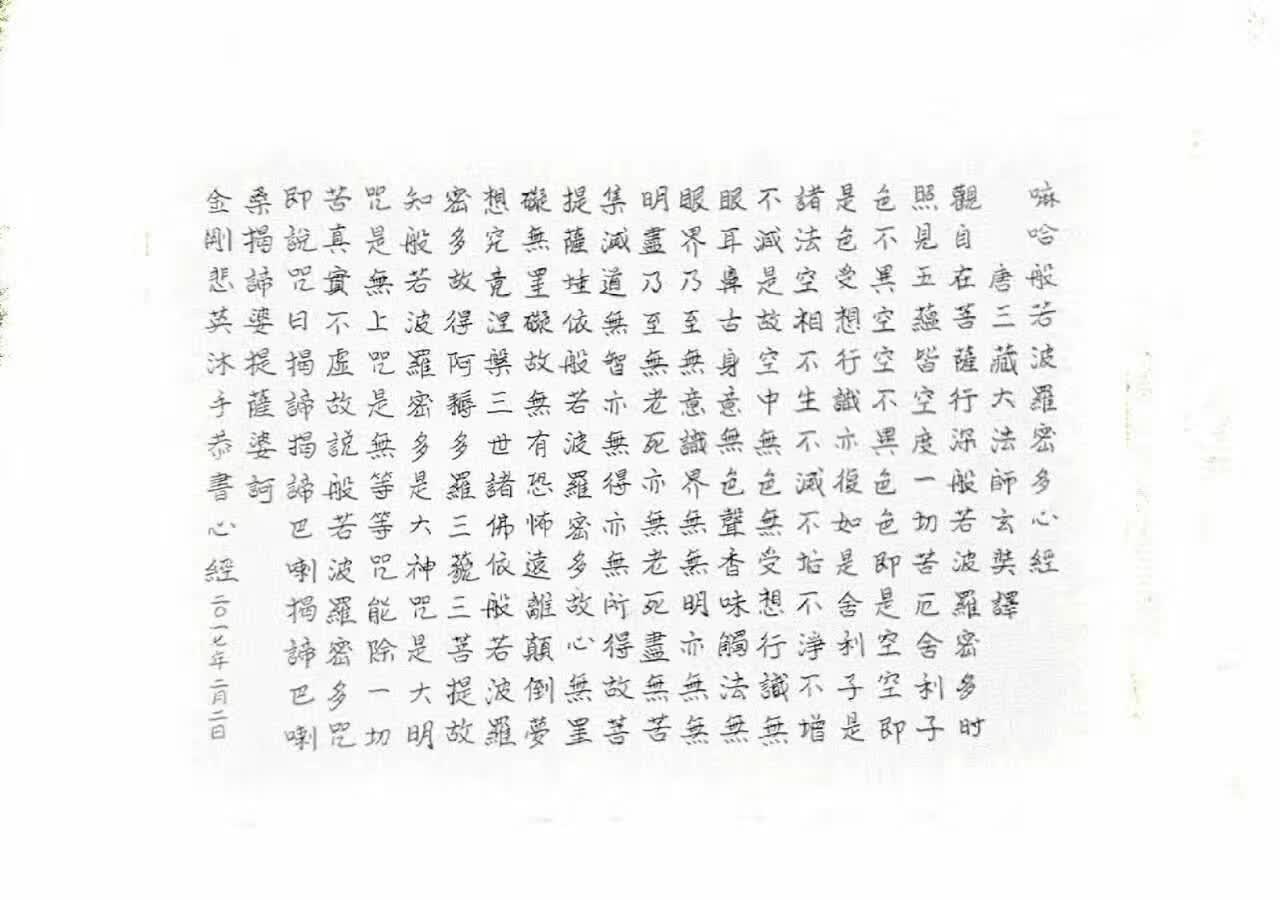 嘛哈般若波羅密多心經
唐三藏大法師玄奘譯
觀自在菩薩行深般若波羅密多时
照見五蘊皆空度一切苦厄舍利子
色不異空空不異色色即是空空即
是色受想行識亦復如是舍利子是
諸法空相不生不滅不垢不淨不增
不減是故空中無色無受想行識無
眼耳鼻古身意無色聲香味觸法無
眼界乃至無意識界無無明亦無無
明盡乃至無老死亦無老死盡無苦
集滅道無智亦無得亦無所得故菩
提薩埵依般若波羅密多故心無罣
礙無罣礙故無有恐怖遠離顛倒夢
想究竟涅槃三世諸佛依般若波羅
密多故得阿耨多羅三藐三菩提故
知般若波羅密多是大神咒是大明
咒是無上咒是無等等咒能除一切
苦真實不虛故説般若波羅密多咒
即說咒曰揭諦揭諦巴喇揭諦巴喇
桑揭諦婆提薩婆訶
金剛悲英沐手恭書心經二〇一七年二月二日